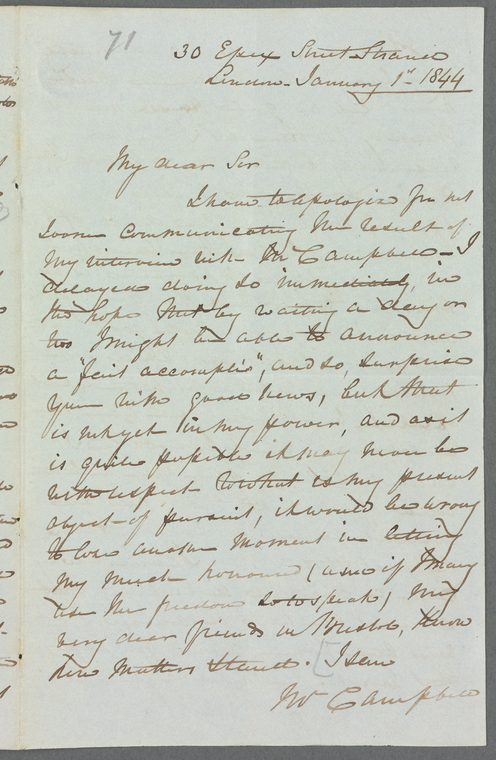 71
30 Essex Street Strand
London - January 1st 1844
My dear Sir
I have to apologize for not
sooner communicating the result of
my interview with Mr Campbell - I
delayed doing so immediately, in
the hope that by waiting a day or
two I might be able to announce
a "fait accompli", and so, surprise
you with good news, but that
is not yet in my power, and as it
is quite possible it may never be
with respect to what is my present
object of pursuit, it would be wrong
to lose another moment in letting
my much honoured (and if I may
use the freedom so to speak) my
very dear friends in Bristol, know
how matters stand. [I saw
Mr Campbell